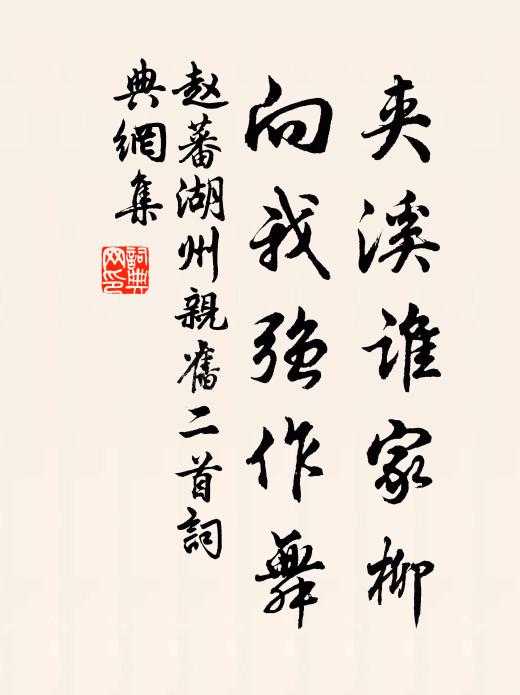 夹溪谁家柳
向我强作舞
赵蕃湖州親舊二首詞
典網集
詞典
网印